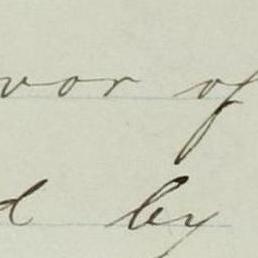 vor of
d by